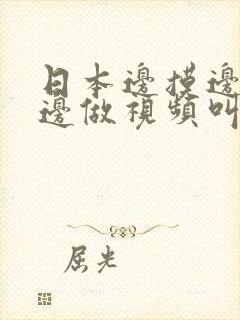 日本邊摸邊
邊做視頻叫
屈光